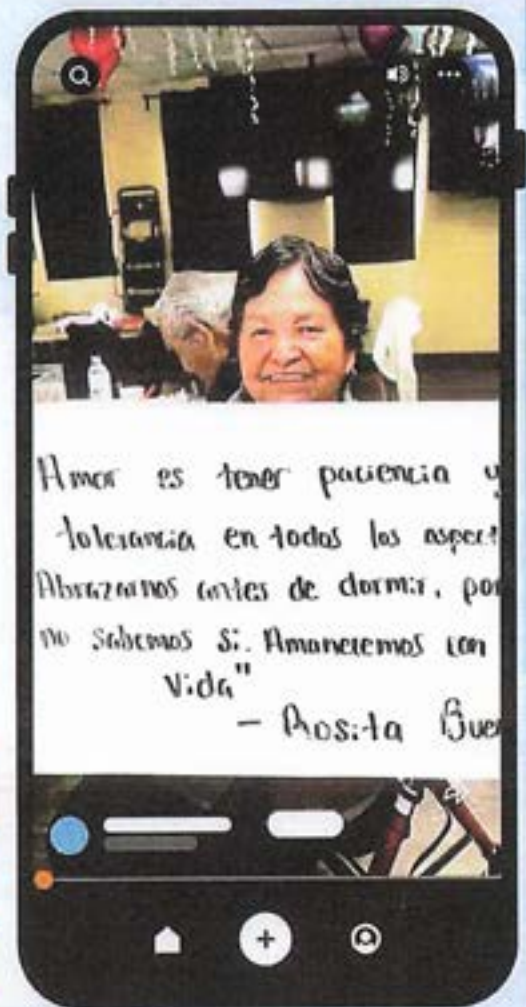 Amor es tener paciencia y
tolerancia en todos los aspect
Abrazarnos antes de dormir, por
no sabemos si. Amanecemos con
vida"
- Rosita Bue